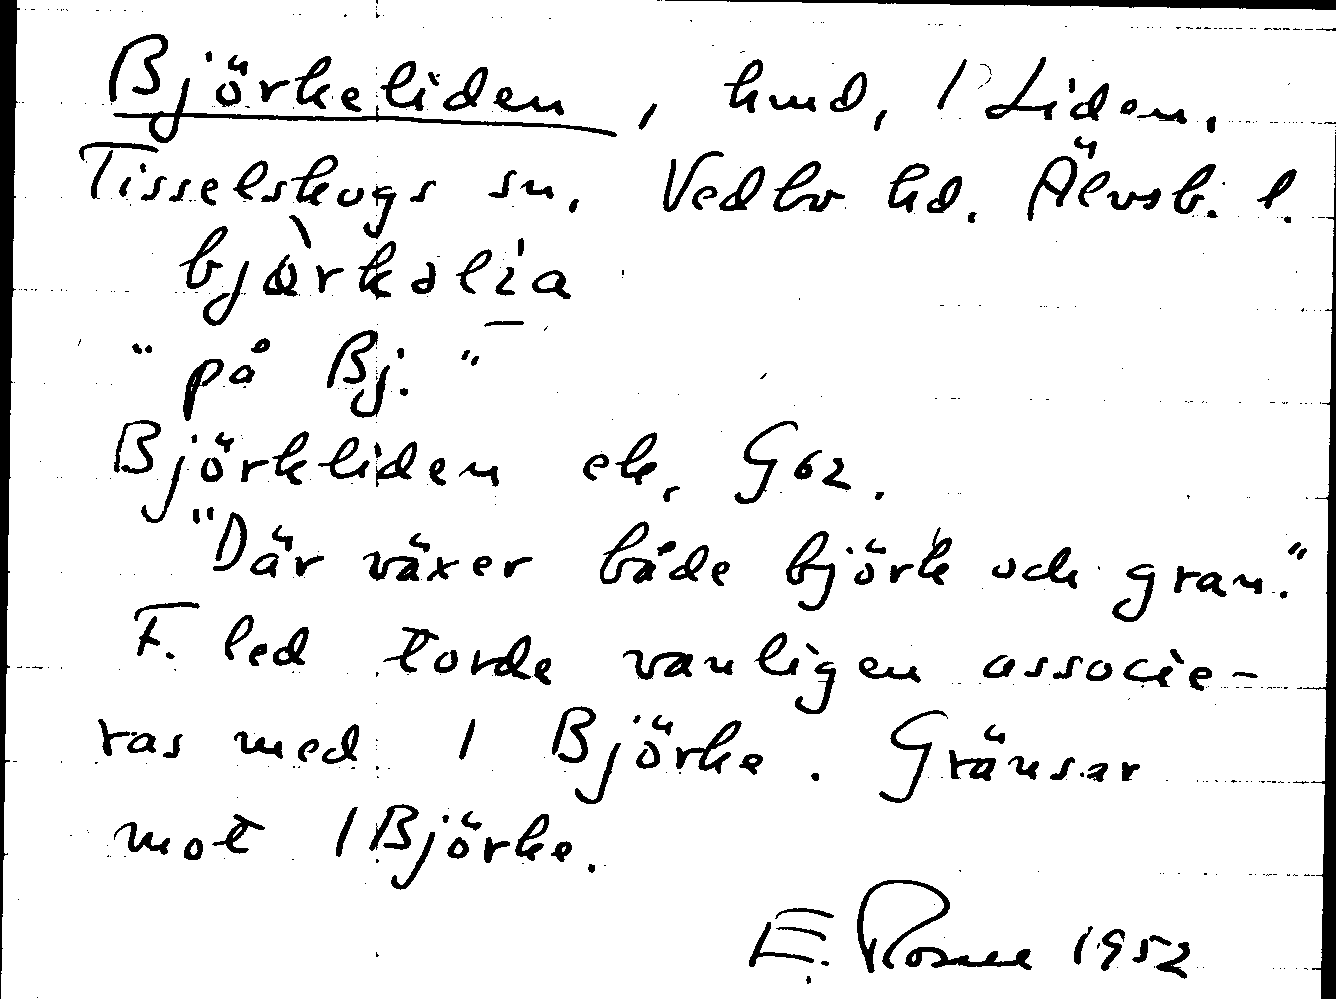 Björkeliden, hmd, 1 Liden,
Tisselskogs sn, Vedbo hd. Älvsb. l.
bjørkəlia
"på Bj."
Björkliden ek, G62.
"Där växer både björk och gran."
F. led torde vanligen associe-
ras med 1 Björke. Gränsar
mot 1 Björke.
E. 1952